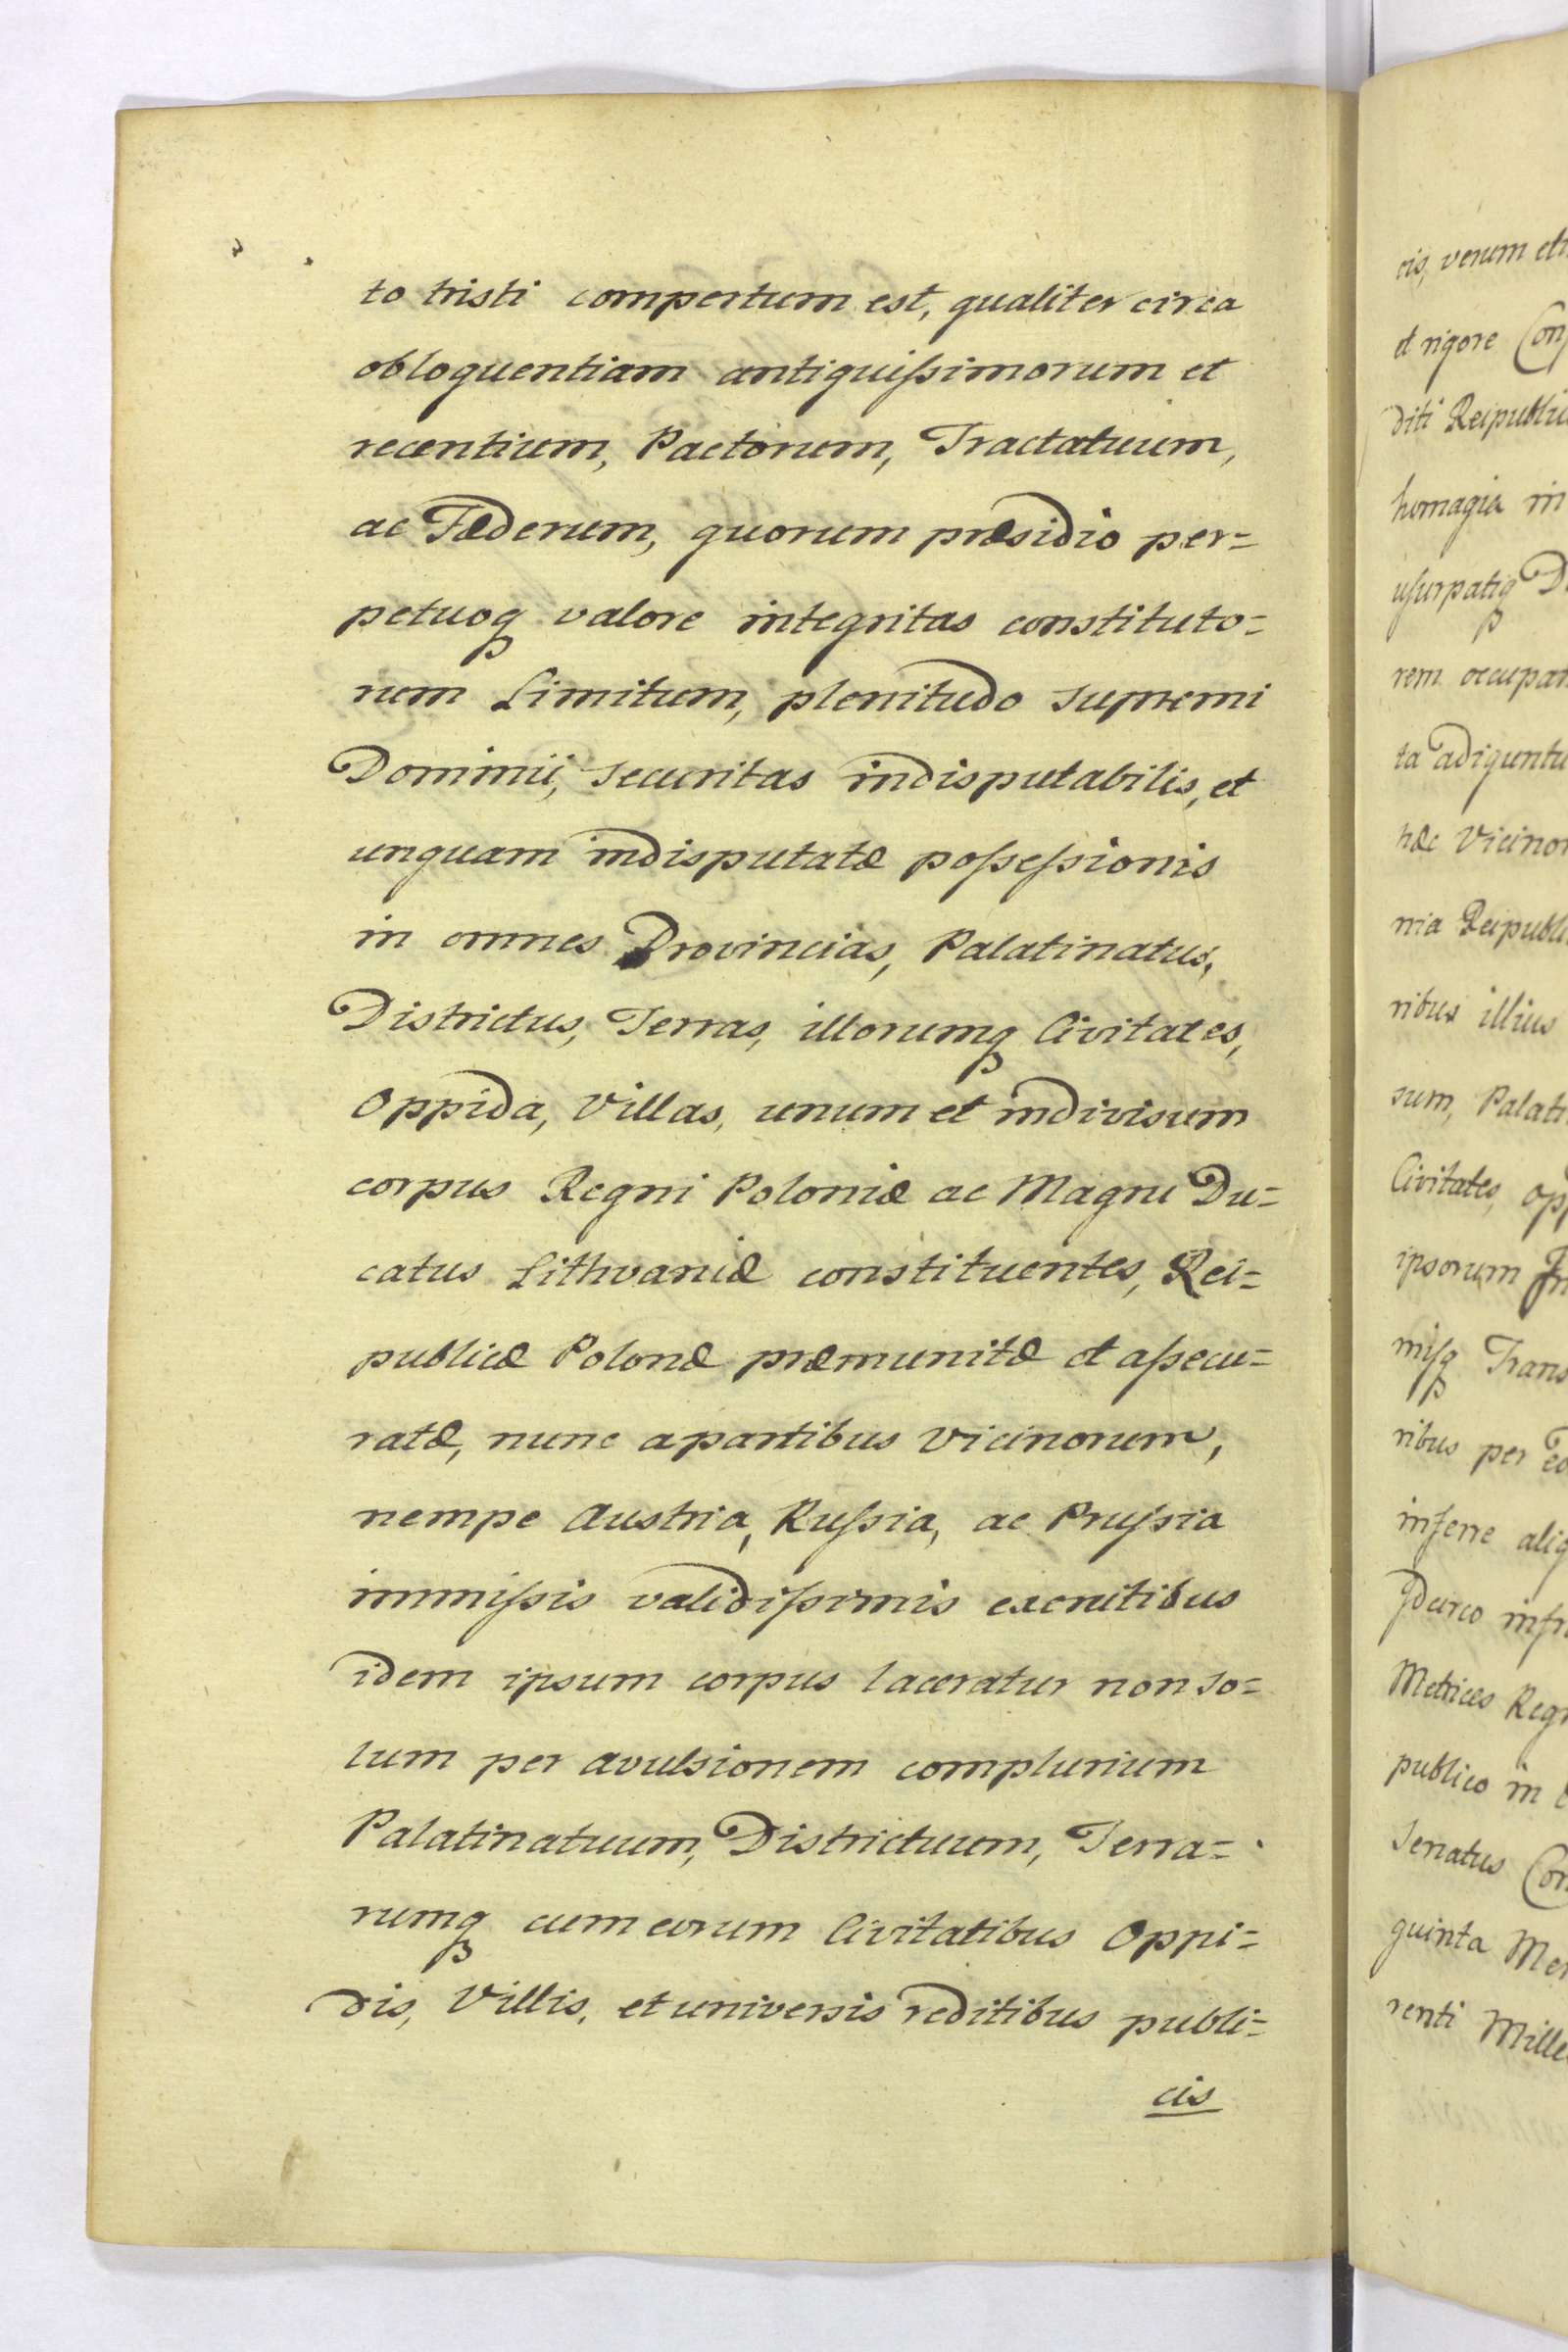 to tristi compertum est, qualiter circa
obloquentiam antiquissimorum et
recentium, Pactorum, Tractatuum,
ac Fæderum, quorum præsidio per=
petuoq valore integritas constituto=
rum Limitum, plenitudo supremi
Dominii, securitas indisputabilis, et
unquam indisputatæ possessionis
in omnes Provincias, Palatinatus,
Districtus, Terras, illorumq Civitates,
Oppida, Villas, unum et indivisum
corpus Regni Poloniæ ac Magni Du=
catus Lithvaniæ constituentes, Rei=
publicæ Polonæ præmunitæ et assecu=
ratæ, nunc apartibus Vicinorum,
nempe Austria, Russia, ac Prussia
immissis validissimis exercitibus
idem ipsum corpus laceratur non so=
lum per avulsionem complurium
Palatinatuum, Districtuum, Terra=
rumq cum eorum Civitatibus Oppi=
dis, Villis, et universis reditibus publi=
cis
cis, verum
et rigore
diti
homagia in
usurpatiq
rem
ta adiguntu
hæc Vicinor
nia Reipubli
ribus illius
sum, Palati
Civitates,
ipsorum
misq Trans
ribus per
inferre aliq
Metrices Reg
publico in
Senatus Con
quinta
renti Mille